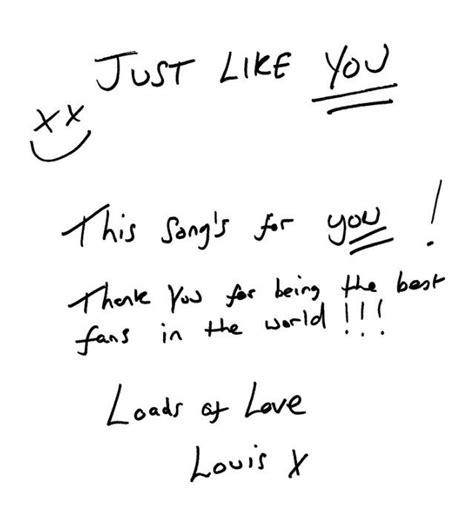 JUST LIKE YOU
xx
This Song's for you!
Thank You for being the best
fans in the world!!!
Loads of Love
Louis x